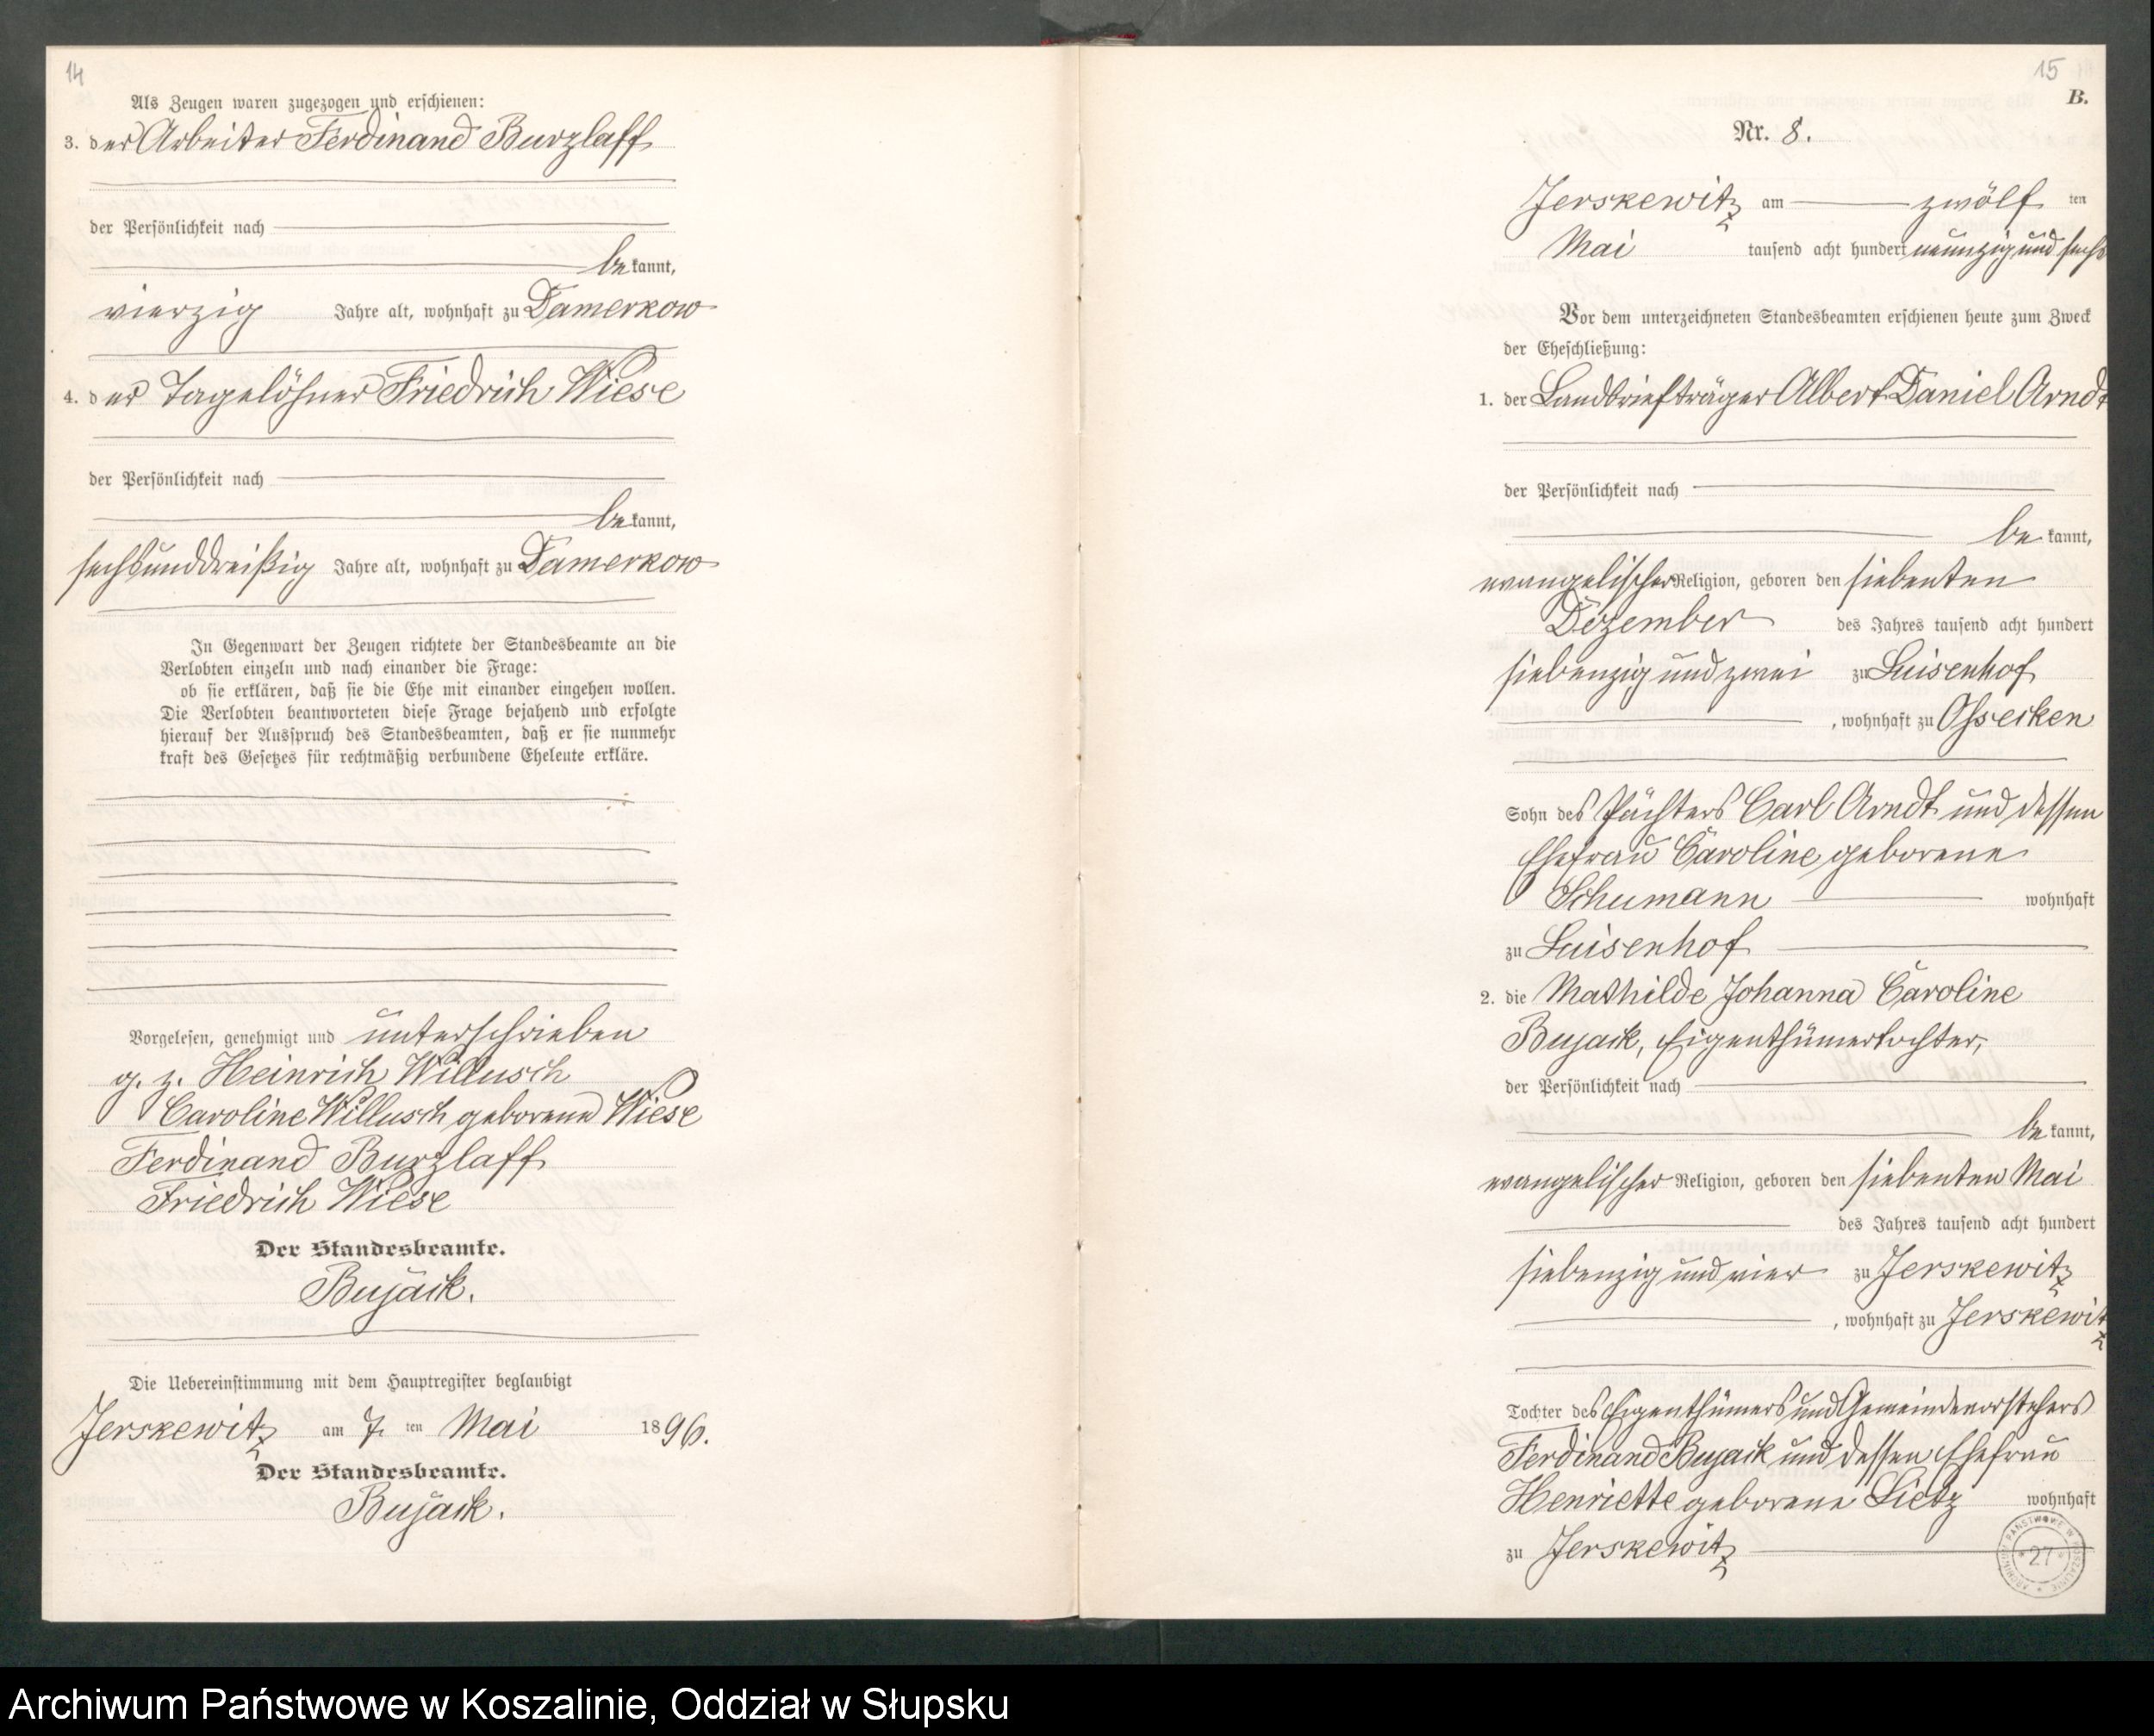 14
Als Zeugen waren zugezogen und erschienen:
3. der Arbeiter Ferdinand Burzlaff
der Persönlichkeit nach
bekannt,
vierzig Jahre alt, wohnhaft zu Damerkow
4. der Tagelöhner Friedrich Wiese
der Persönlichkeit nach
bekannt,
sechsunddreißig Jahre alt, wohnhaft zu Damerkow
In Gegenwart der Zeugen richtete der Standesbeamte an die
Verlobten einzeln und nach einander die Frage:
ob sie erklären, daß sie die Ehe mit einander eingehen wollen.
Die Verlobten beantworteten diese Frage bejahend und erfolgte
hierauf der Ausspruch des Standesbeamten, daß er sie nunmehr
kraft des Gesetzes für rechtmäßig verbundene Eheleute erkläre.
Vorgelesen, genehmigt und unterschrieben
g. z. Heinrich Willusch
Caroline Willusch geborene Wiese
Ferdinand Burzlaff
Friedrich Wiese
Der Standesbeamte.
Bujack.
Die Uebereinstimmung mit dem Hauptregister beglaubigt
Jerskewitz am 7. ten Mai 1896.
Der Standesbeamte.
Bujack.
15
B.
Nr. 8.
Jerskewitz am zwölf ten
Mai tausend acht hundert neunzig und sechs
Vor dem unterzeichneten Standesbeamten erschienen heute zum Zweck
der Eheschließung:
1. der Landbriefträger Albert Daniel Arndt
der Persönlichkeit nach
bekannt,
evangelischer Religion, geboren den siebenten
Dezember des Jahres tausend acht hundert
siebenzig und zwei zu Luisenhof
, wohnhaft zu Ossecken
Sohn des Pächters Carl Arndt und dessen
Ehefrau Caroline geborene
Schumann wohnhaft
zu Luisenhof
2. die Mathilde Johanna Caroline
Bujack, Eigenthümertochter,
der Persönlichkeit nach
bekannt,
evangelischer Religion, geboren den siebenten Mai
des Jahres tausend acht hundert
siebenzig und vier zu Jerskewitz
, wohnhaft zu Jerskewitz
Tochter des Eigenthümers und Gemeindevorstehers
Ferdinand Bujack und dessen Ehefrau
Henriette geborene Lietz wohnhaft
zu Jerskewitz
ARCHIWUM PAŃSTWOWE W KOSZALINIE
27
Archiwum Państwowe w Koszalinie, Oddział w Słupsku